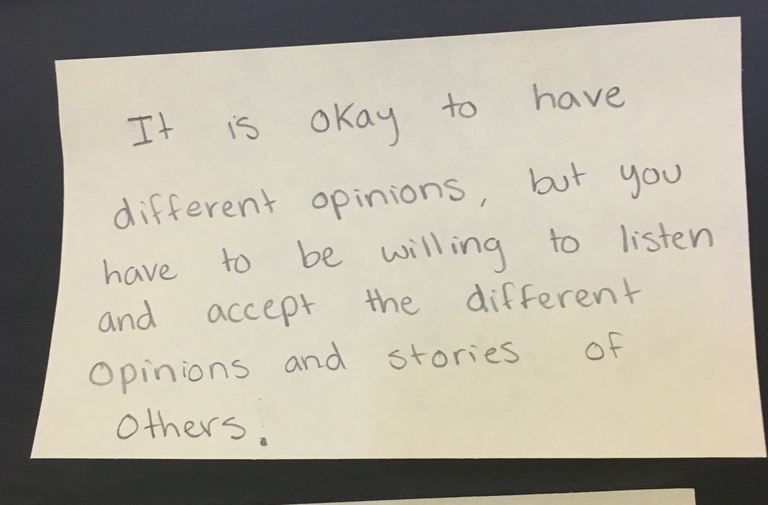 It is okay to have
different opinions, but you
have to be willing to listen
and accept the different
opinions and stories of
others.